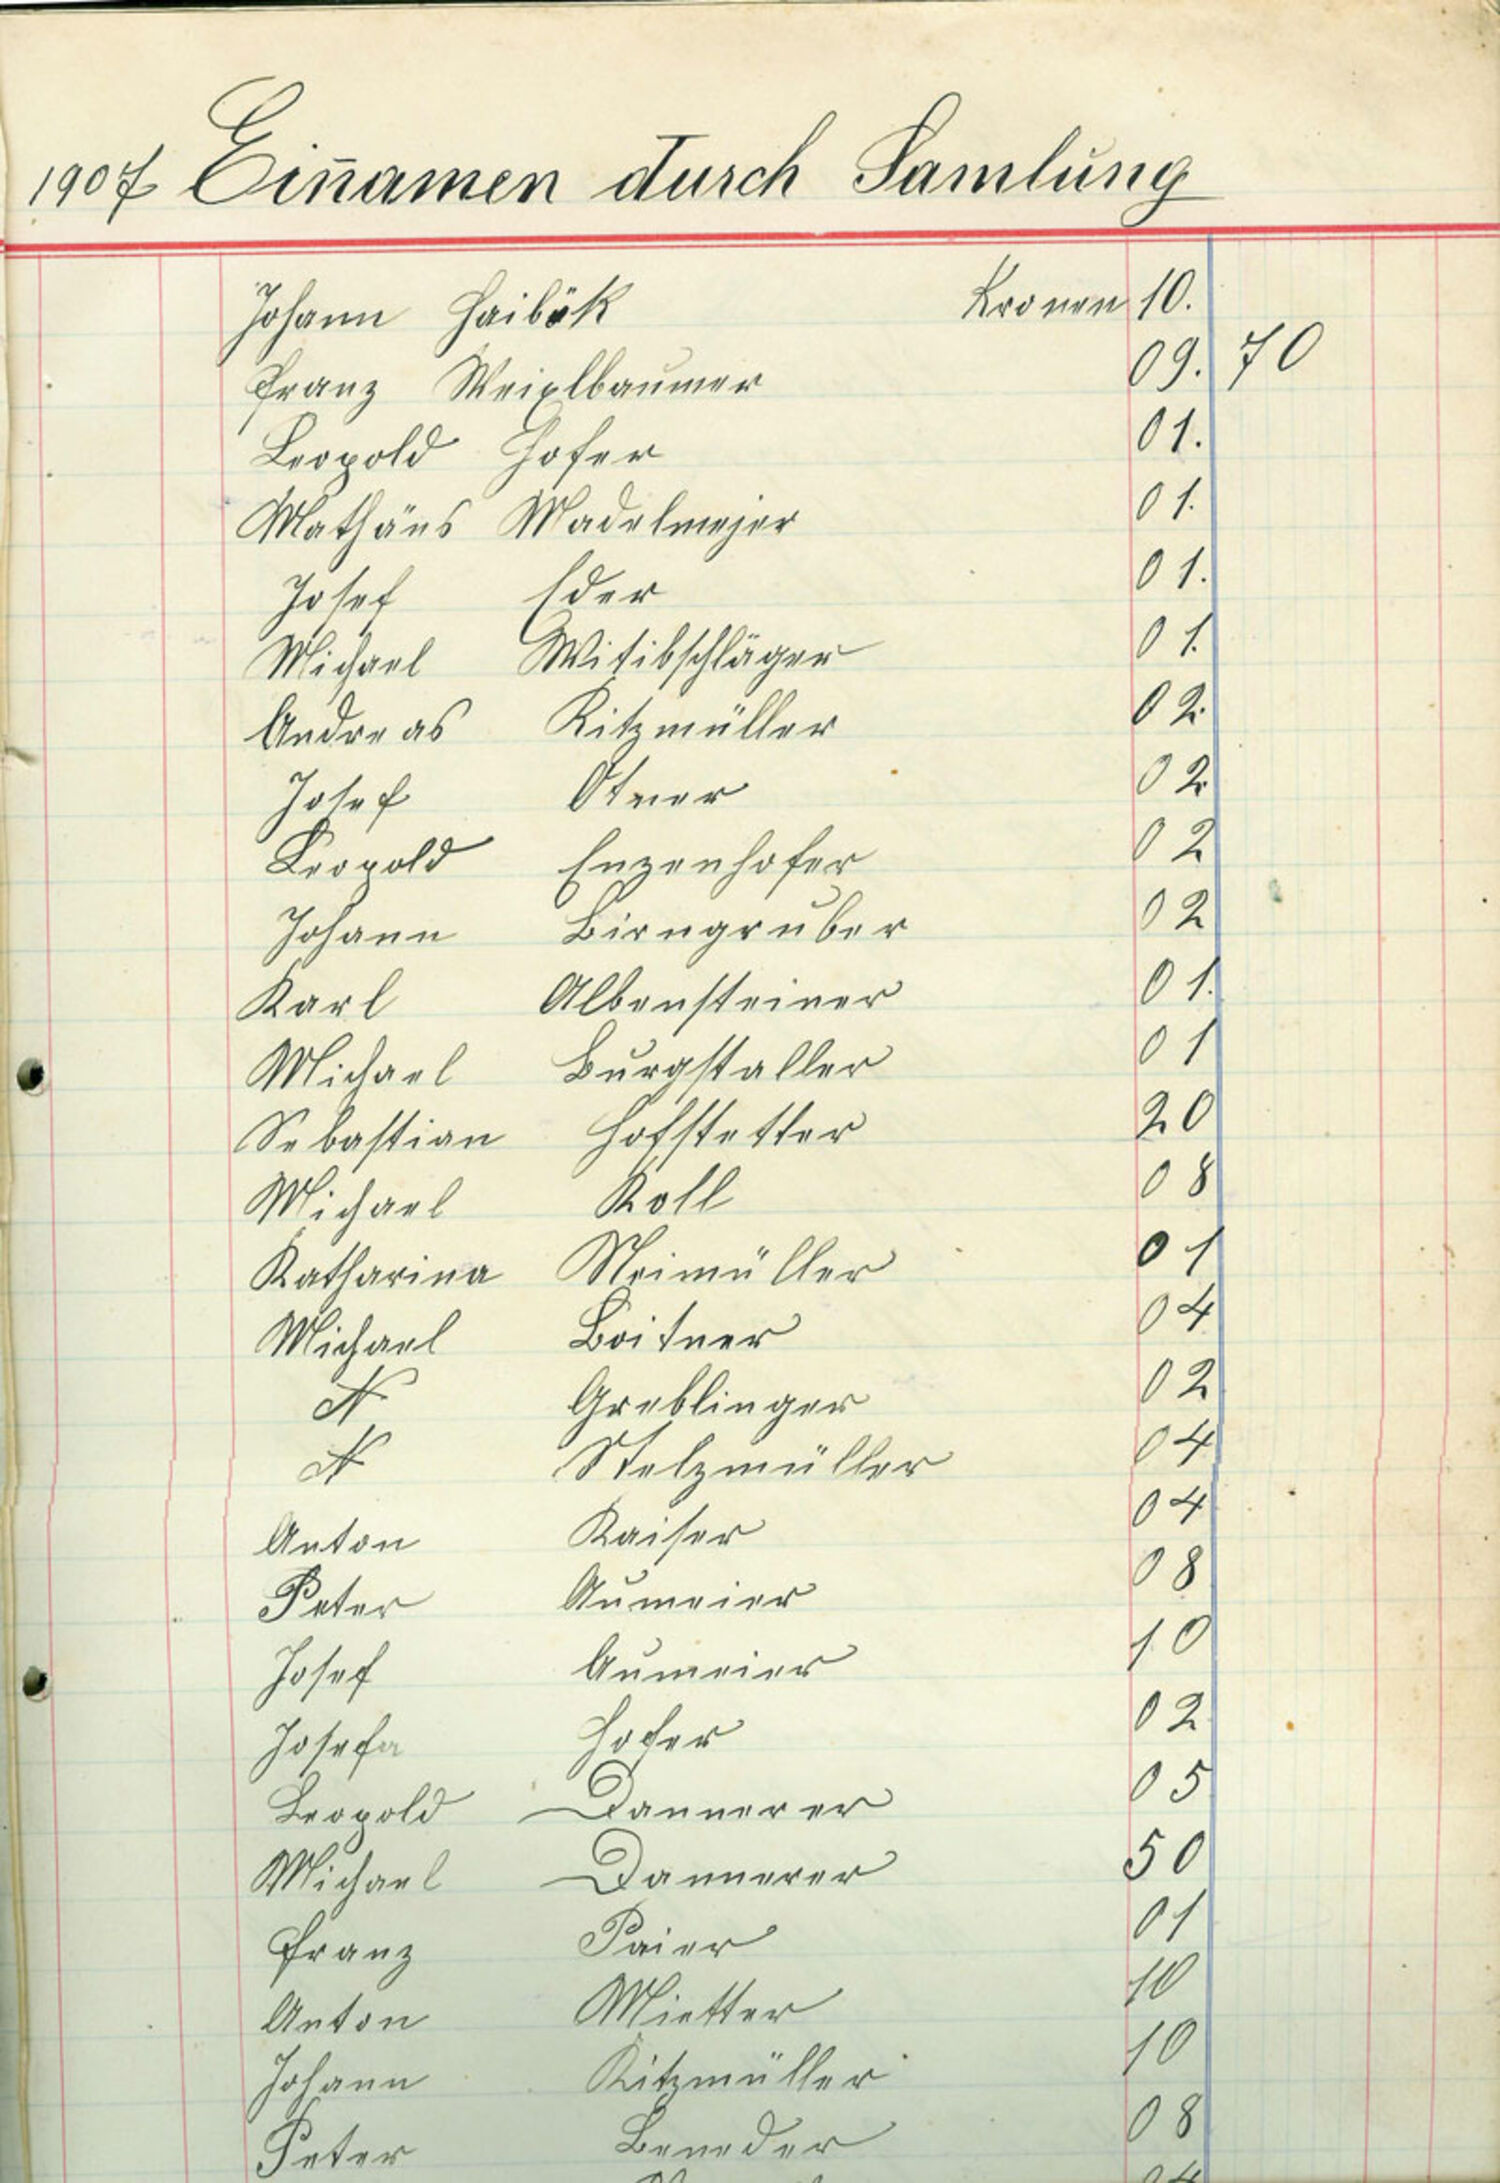 1907 Ein̄amen durch Samlung
Johann Haibök Kronen 10.
Franz Weixlbaumer 09. 70
Leopold Hofer 01.
Mathäus Madelmejer 01.
Josef Eder 01.
Michael Witibschläger 01.
Andreas Kitzmüller 02.
Josef Otner 02.
Leopold Enzenhofer 02
Johann Birngruber 02
Karl Albensteiner 01.
Michael Burgstaller 01
Sebastian Hofstetter 20
Michael Koll 08
Katharina Neimüller 01
Michael Loitner 04
N Greblinger 02
N Stelzmüller 04
Anton Kaiser 04
Peter Aumeier 08
Josef Aumeier 10
Josefa Hofer 02
Leopold Dannerer 05
Michael Dannerer 50
Franz Paier 01
Anton Mietter 10
Johann Kitzmüller 10
Peter Beneder 08
04